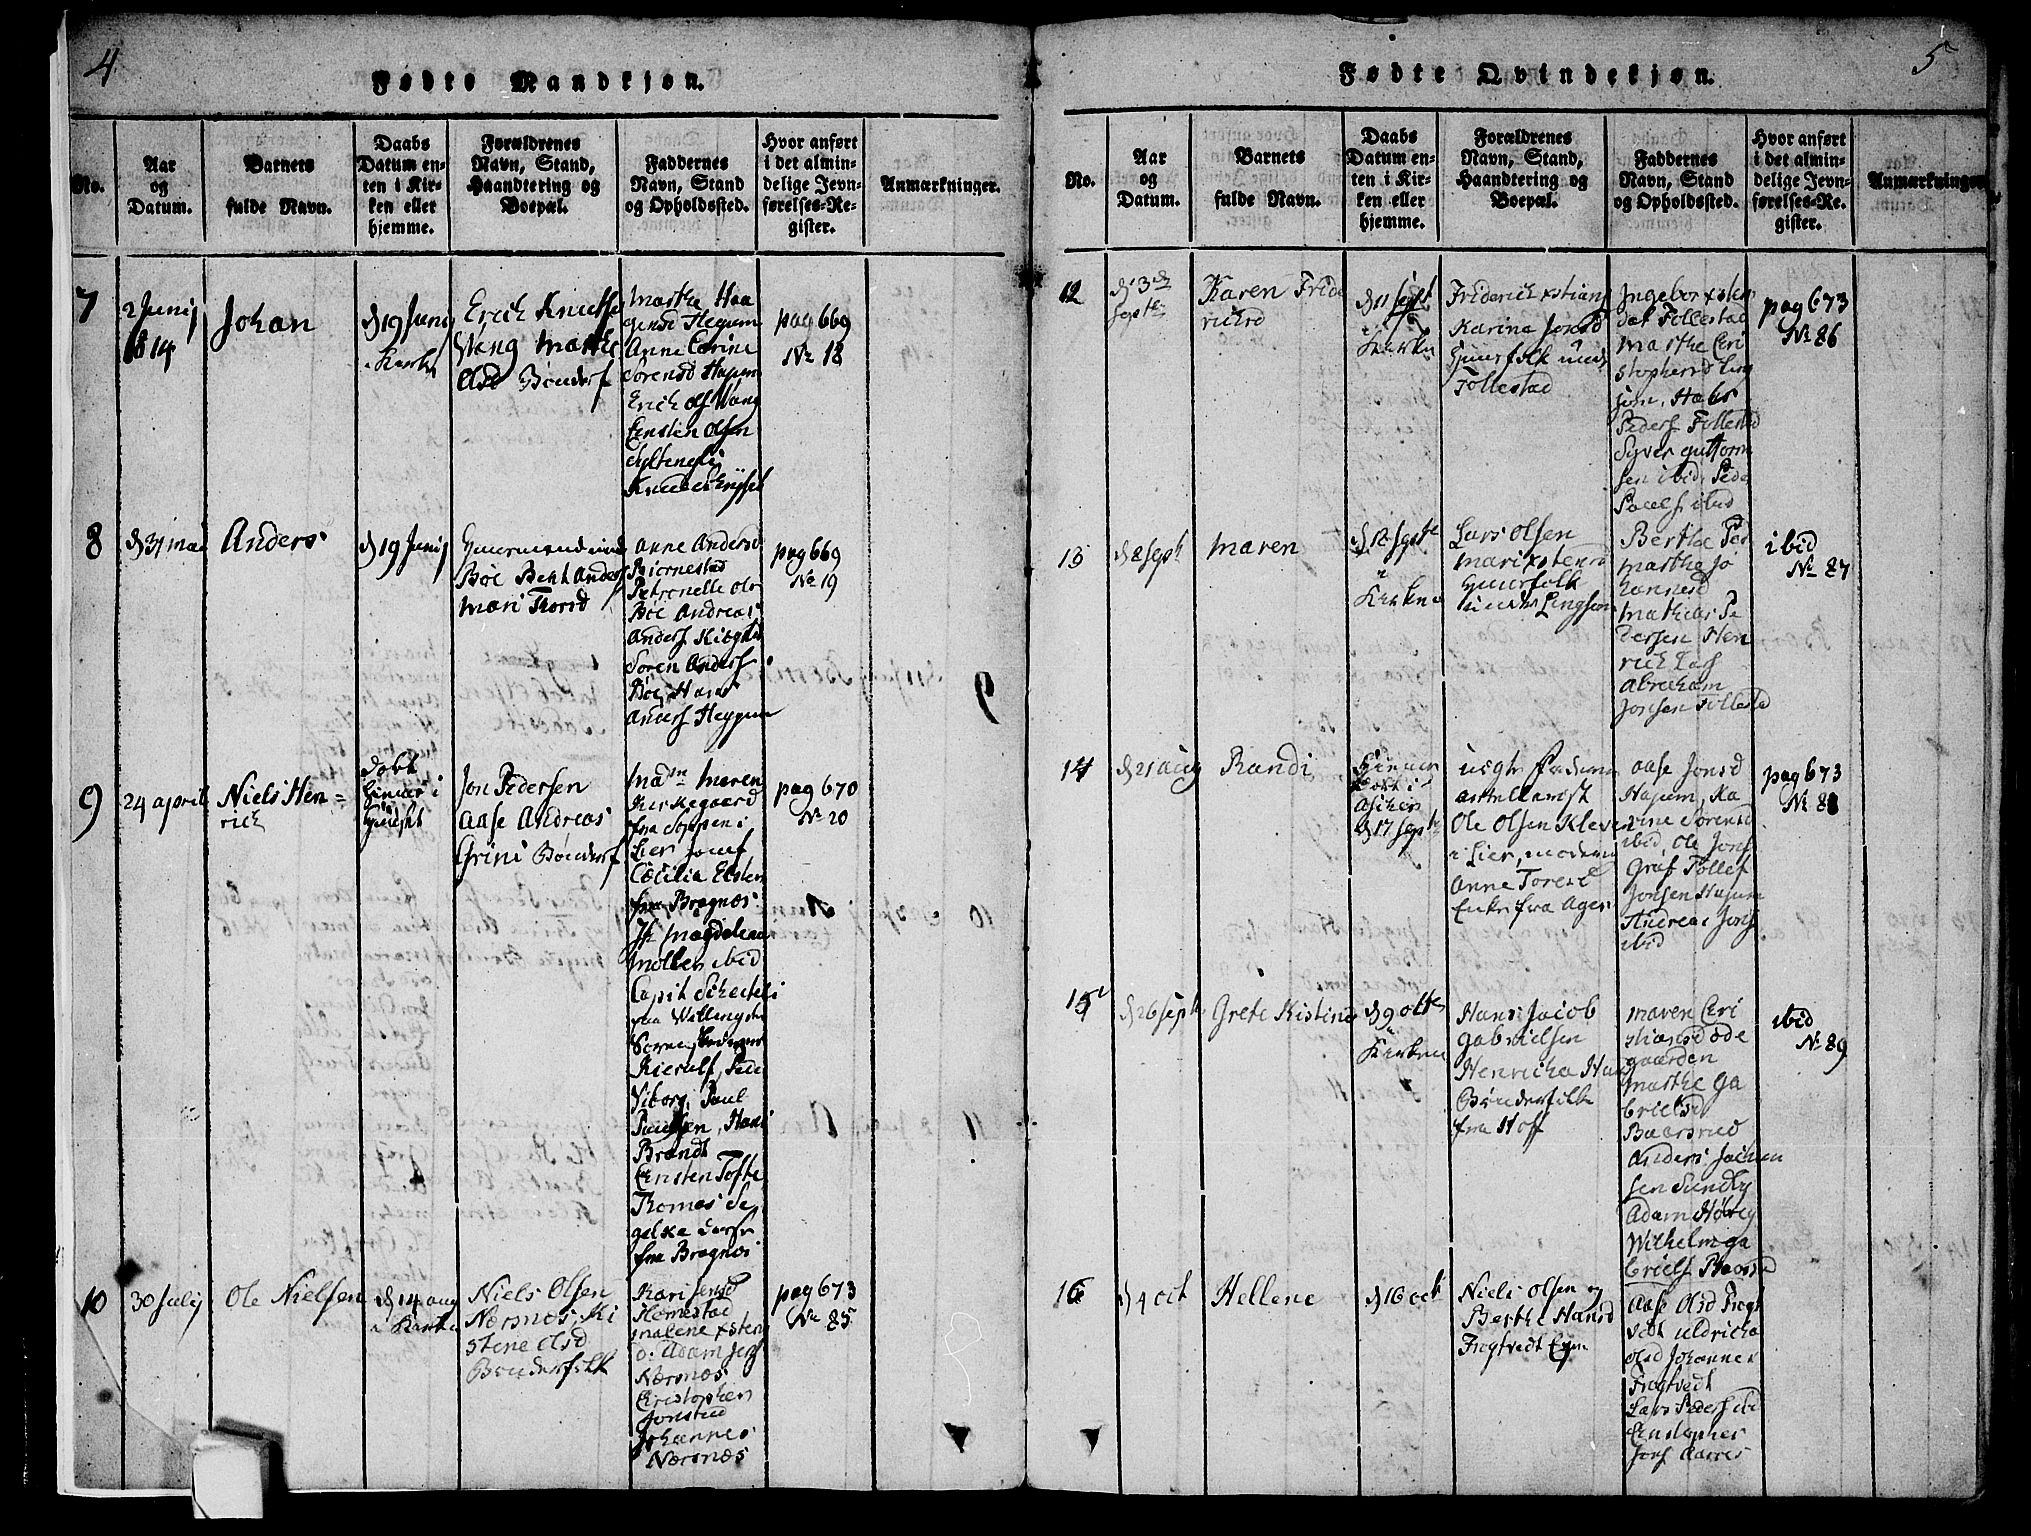 4
Fødte Mandkjøn.
No.
Aar
og
Datum.
Barnets
fulde Navn.
Daabs
Datum en-
ten i Kir-
ken eller
hjemme.
Forældrenes
Navn, Stand,
Haandtering og
Boepæl.
Faddernes
Navn, Stand
og Opholdssted.
Hvor anført
i det almin-
delige Jevn-
førelses-Re-
gister.
Anmærkninger.
7
2 Junij
1814
Johan
d 19 Junij
i Kirken
Erich Knuds
Wang Marthe
Olsd Bønderf
Marthe Haa
gensd Heggum
Anne Carine
Sørensd Hagum
Erich Ols Wang
Cristen Olsen
Knud
pag 669
No 18
8
d 31 mai
Anders
d 19 Junij
Huusmand
Bøe Bent Anders
Mari Thorsd
Anne Andersd
Biørnestad
Petronelle Ols
Bøe Andreas
Anders
Søren Anders
Bøe, Hans
Anders Heggum
pag 669
No 19
9
24 april
Niels Hen=
rich
Døbt
i
Jon Pedersen
Aase Andreas
Grini Bønderf
Mad.m Maren
Kierkegaard
fra i
Lier Josef
Cæcilia
fra Bragnes
Jfr Magdelena
Møller ibid
Capit
fra
Søren
Kierulf,
Viborg, Paul
Paulsen, Hans
Brandt
Cristen Tofte
Thomas
fra Bragnes
pag 670
No 20
10
30 July
Ole Nielsen
d 14 aug
i Kirken
Niels Olsen
Nærsnes, Ki
stene Olsd
Bønderfolk
Kari Jensd
Hernestad
Malene xsten
d. Adam Jens
Nærsnes
Cristopher
Jonstad
Johannes
Nærsnes
pag 673
No 85
5
Fødte Qvindekjøn.
No.
Aar
og
Datum.
Barnets
fulde Navn.
Daabs
Datum en-
ten i Kir-
ken eller
hjemme.
Forældrenes
Navn, Stand,
Haandtering og
Boepæl.
Faddernes
Navn, Stand
og Opholdssted.
Hvor anført
i det almin-
delige Jevn-
førelses-Re-
gister.
Anmærkninger
12
d 3
Septe
Karen Fride
richsd
d 11 Sept
i
Kirken
Friderich xstians
Karina Jonsd
Huusfolk under
Follestad
Ingebor xsten
dat Follestad
Marthe Cri
stophersd Ling
jem, Hans
Peders Follestad
Syver Guttorm
sen ibid, Peder
Pauls ibid
pag 673
No 86
13
d 2 Sept
Maren
d 18 Septe
i
Kirken
Lars Olsen
Mari xstensd
Huusfolk
under Lingsom
Berthe Per
Marthe Jo
hannesd
Mathias Pe
dersen Hen
rich Lars
Abraham
Jonsen Follestad
ibid
No 87
14
d 21 aug
Randi
døbt i
Asker
d 17 Sept
Ole Olsen Kleven
i Lier, moderen
Anne Toresd
Enke fra Ager
Aase Jonsd
Hagum, Ka
rine Sørensd
ibid, Ole Jons
Graf Tollef
Jonsen Hagum
Andreas Jons
ibid
pag 673
No 88
15
d 26 Sept
Grete Kistine
d 9 octe
i
Kirken
Hans Jacob
Gabrielsen
Henricha Hans
Bønderfolk
fra Hoff
Maren Cri
stiansd Øde
gaarden
Marthe Ga
brielsd
Baarsrud
Anders Jochum
sen Sundby
Adam Høvig
Wilhelm Ga
briels
ibid
No 89
16
d 4 oct
Hellene
d 16 oct
Niels Olsen og
Berthe Hansd
Frogtvedt
Aase Olsd Frogt
vedt Uldricha
Olsd Johannes
Frogtvedt
Lars Peders ibid
Cristopher